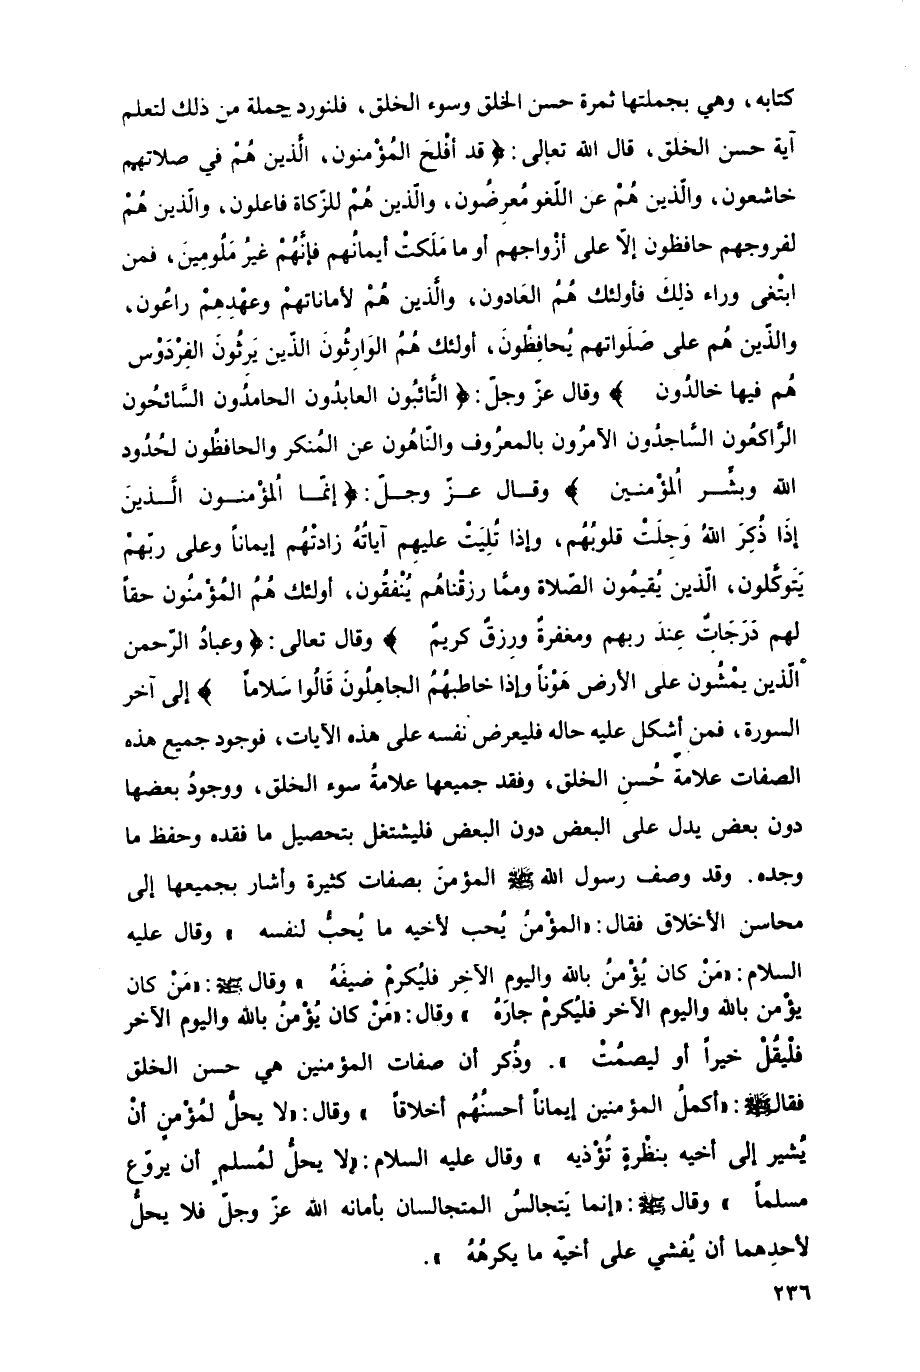 كتابه، وهي بجملتها ثمرة حسن الخلق وسوء الخلق، فلنورد جملة من ذلك لتعلم
آية حسن الخلق، قال الله تعالى: ﴿ قد أفْلحَ المُؤْمنون، الَّذين هُمْ في صلاتهم
خاشعون، والّذين هُمْ عن اللّغو مُعرِضُون، والّذين هُمْ للزّكاة فاعلون، والّذين هُمْ
لفروجهم حافظون إلاّ على أزْواجهم أو ما مَلَكتْ أيمانُهم فإنَّهُمْ غيرُ مَلُومِينَ، فمن
ابتْغى وراء ذلِكَ فأولئك هُمُ العَادون، والَّذين هُمْ لأماناتهمْ وعهْدِهمْ راعُون،
والذّين هُم على صَلَواتهم يُحافِظُونَ، أولئك هُمُ الوَارِثُونَ الذّين يَرثُونَ الفِرْدَوْس
هُم فيها خالدُون ﴾ وقال عزّ وجلّ: ﴿ التَّائبُون العابدُون الحامدُون السَّائحُون
الرَّاكعُون السَّاجدُون الآمرُون بالمعرُوف والنّاهُون عن المُنكر والحافظُون لحُدُود
الله وبشَّر المُؤْمنين ﴾ وقال عزّ وجلّ: ﴿ إنمَّا المُؤْمنون الَّذينَ
إذَا ذُكِرَ اللهُ وَجِلَتْ قلوبُهُم، وإذا تُلِيَتْ عليهِم آياتُهُ زادتْهُم إيماناً وعلى ربّهمْ
يَتَوكَّلون، الّذين يُقيمُون الصّلاة وممَّا رزقْناهُم يُنْفقُون، أولئك هُمُ المُؤْمنُون حقاً
لهم دَرَجَاتٌ عِندَ ربهم ومغفرةٌ ورِزقٌ كريمٌ ﴾ وقال تعالى: ﴿ وعبادُ الرّحمن
الّذين يمْشُون على الأرض هَوْناً وإذا خاطبهُمُ الجاهِلُونَ قَالُوا سَلاماً ﴾ إلى آخر
السورة، فمن أشكل عليه حاله فليعرض نفسه على هذه الآيات، فوجود جميع هذه
الصفات علامةُ حُسنِ الخلق، وفقد جميعها علامةُ سوء الخلق، ووجودُ بعضها
دون بعض يدل على البعض دون البعض فليشتغل بتحصيل ما فقده وحفظ ما
وجده. وقد وصف رسول الله ﷺ المؤمنَ بصفات كثيرة وأشار بجميعها إلى
محاسن الأخلاق فقال: «المؤْمنُ يُحب لأخيه ما يُحبُّ لنفسه » وقال عليه
السلام: «مَنْ كان يُؤْمنُ بالله واليوم الآخِر فليُكرمْ ضيفَهُ » وقال ﷺ: «مَنْ كان
يؤْمن بالله واليوم الآخر فليُكرمْ جارَهُ » وقال: «مَنْ كان يُؤْمنُ بالله واليوم الآخر
فلْيقُلْ خيراً أو ليصمُتْ ». وذُكر أن صفات المؤمنين هي حسن الخلق
فقال ﷺ: «أكملُ المؤمنين إيماناً أحسنُهُم أخلاقاً » وقال: «لا يحلُّ لمُؤْمنٍ أنْ
يُشير إلى أخيه بنظْرةٍ تُؤْذيه » وقال عليه السلام: «لا يحلُّ لمُسلمٍ أن يروّع
مسلماً » وقال ﷺ: «إنما يَتجالسُ المتجالسان بأمانه الله عزّ وجلّ فلا يحلُّ
لأحدِهما أن يُفشي على أخيّه ما يكرهُهُ ».
٢٣٦